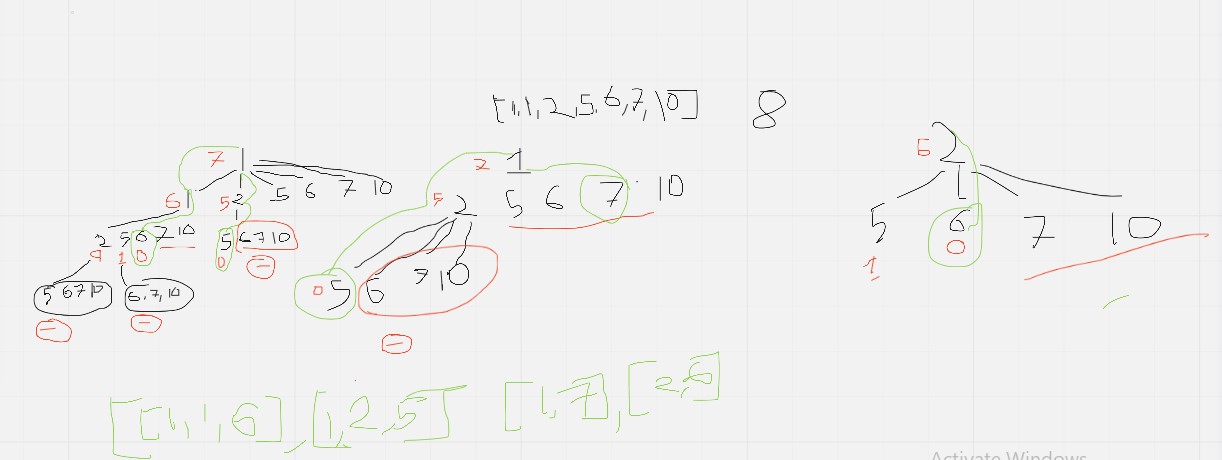 [1,1,2,5,6,7,10] 8
7 1
6 1 5 2 5 6 7 10
2 5 6 7 10 5 6 7 10
4 1 0 0 −
5 6 7 10 6,7,10
− −
2 1
5 2 5 6 7 10
0 5 6 7 10
−
6 2
5 6 7 10
1 0
[[1,1,6],[1,2,5] [1,7],[2,6]
Activate Windows